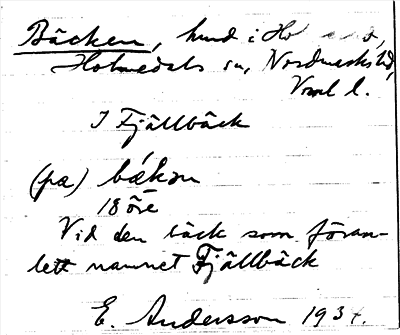 Bäcken, hmd i Ho
Holmedals sn, Nordmarks hd,
Vrml l.
I Fjällbäck
(pa) bækₔn
18 öre
Vid den bäck som föran-
lett namnet Fjällbäck
E. Andersson 193